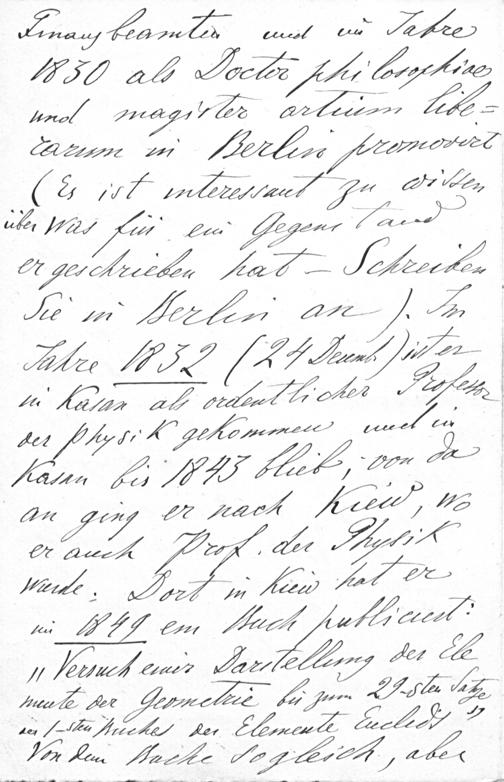 Finanzbeamten und im Jahre
1830 als Doctor philosophiae
und magister artium libe=
rarum in Berlin promovirt
(Es ist interessant zu wissen
über was für ein Gegenstand
er geschrieben hat – Schreiben
Sie in Berlin an). Im
Jahre 1832 (24 Decemb.) ist er
in Kasan als ordentlicher Professor
der Physik gekommen und in
Kasan bis 1843 blieb; von da
an ging er nach Kiew, wo
er auch Prof. der Physik
wurde. Dort in Kiew hat er
im 1849 ein Buch publiciert:
„Versuch einer Darstellung der Ele
mente der Geometrie bis zum 29-sten Satze
des 1-sten Buches der Elemente Euclids"
Von dem Buche sogleich, aber